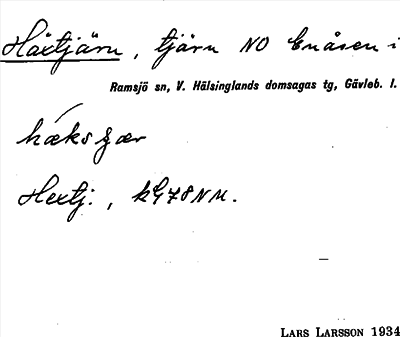 Häxtjärn, tjärn NO Enåsen i
Ramsjö sn, V. Hälsinglands domsagas tg, Gävleb. l.
hæks
Hextj., kG78NM.
LARS LARSSON 1934